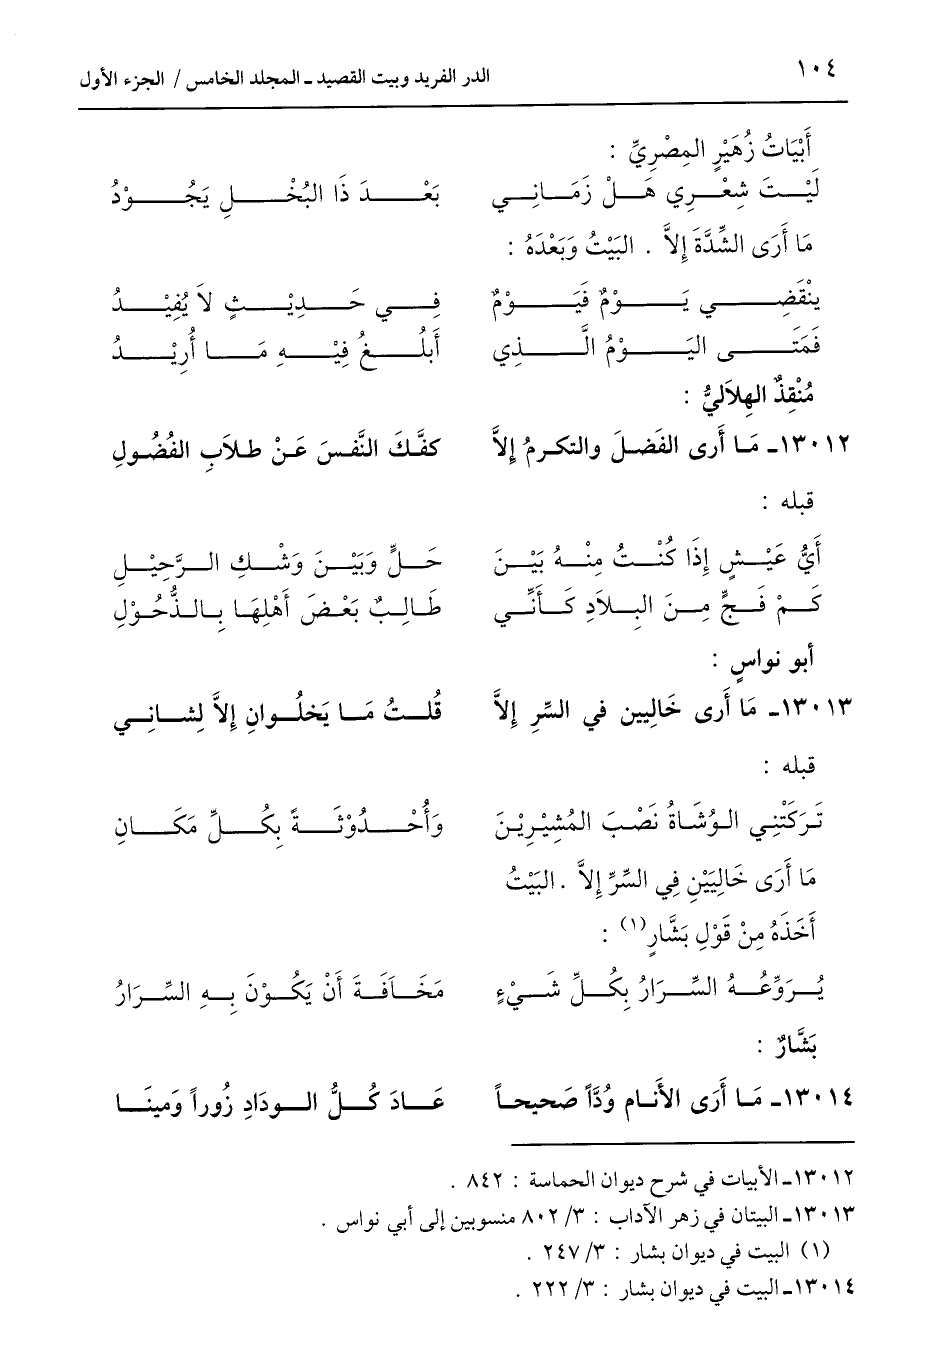 ١٠٤ الدر الفريد وبيت القصيد ـ المجلد الخامس / الجزء الأول
أَبْيَاتُ زُهَيْرٍ المِصْرِيِّ :
لَيْتَ شِعْرِي هَلْ زَمَانِي بَعْدَ ذَا البُخْلِ يَجُوْدُ
مَا أَرَى الشِّدَّةَ إِلاَّ . البَيْتُ وَبَعْدَهُ :
يَنْقَضِي يَوْمٌ فَيَوْمٌ فِي حَدِيْثٍ لاَ يُفِيْدُ
فَمَتَى اليَوْمُ الَّذِي أَبلُغُ فِيْهِ مَا أُرِيْدُ
مُنْقِذٌ الهِلاَلِيُّ :
١٣٠١٢ـ مَا أَرى الفَضلَ والتكرمُ إِلاَّ كفَّكَ النَّفسَ عَنْ طلاَبِ الفُضُولِ
قبله :
أَيُّ عَيْشٍ إِذَا كُنْتُ مِنْهُ بَيْنَ حَلٍّ وَبَيْنَ وَشْكِ الرَّحِيْلِ
كَمْ فَجٍّ مِنَ البِلاَدِ كَأَنِّي طَالِبٌ بَعْضَ أَهْلِهَا بِالذُّحُوْلِ
أبو نواسٍ :
١٣٠١٣ـ مَا أَرى خَاليين في السِّرِ إلاَّ قُلتُ مَا يَخلُوانِ إلاَّ لِشانِي
قبله :
تَرَكَتْنِي الوُشَاةُ نَصْبَ المُشِيْرِيْنَ وَأُحْدُوْثَةً بِكُلِّ مَكَانِ
مَا أَرَى خَالِيَيْنِ فِي السِّرِّ إِلاَّ . البَيْتُ
أَخَذَهُ مِنْ قَوْلِ بَشَّارٍ(١) :
يُرَوِّعُهُ السِّرَارُ بِكُلِّ شَيْءٍ مَخَافَةَ أَنْ يَكُوْنَ بِهِ السِّرَارُ
بَشَّارٌ :
١٣٠١٤ـ مَا أَرَى الأَنام وُدَّاً صَحيحاً عَادَ كُلُّ الودَادِ زُوراً وَمينَا
١٣٠١٢ـ الأبيات في شرح ديوان الحماسة : ٨٤٢ .
١٣٠١٣ـ البيتان في زهر الآداب : ٣/ ٨٠٢ منسوبين إلى أبي نواس .
(١) البيت في ديوان بشار : ٣/ ٢٤٧ .
١٣٠١٤ـ البيت في ديوان بشار : ٣/ ٢٢٢ .